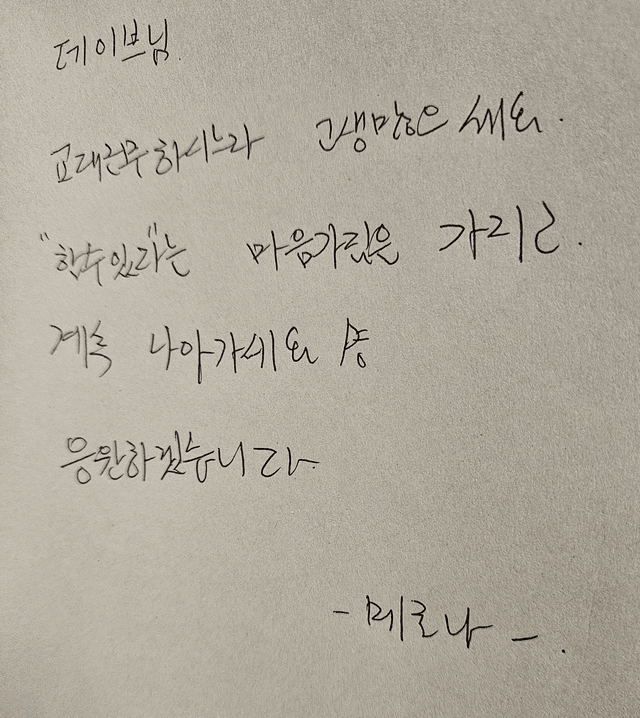 데이브님
교대근무하시느라 고생많으세요.
"할수있다"는 마음가짐은 가지고.
계속 나아가세요
응원하겠습니다.
- 메로나 - .